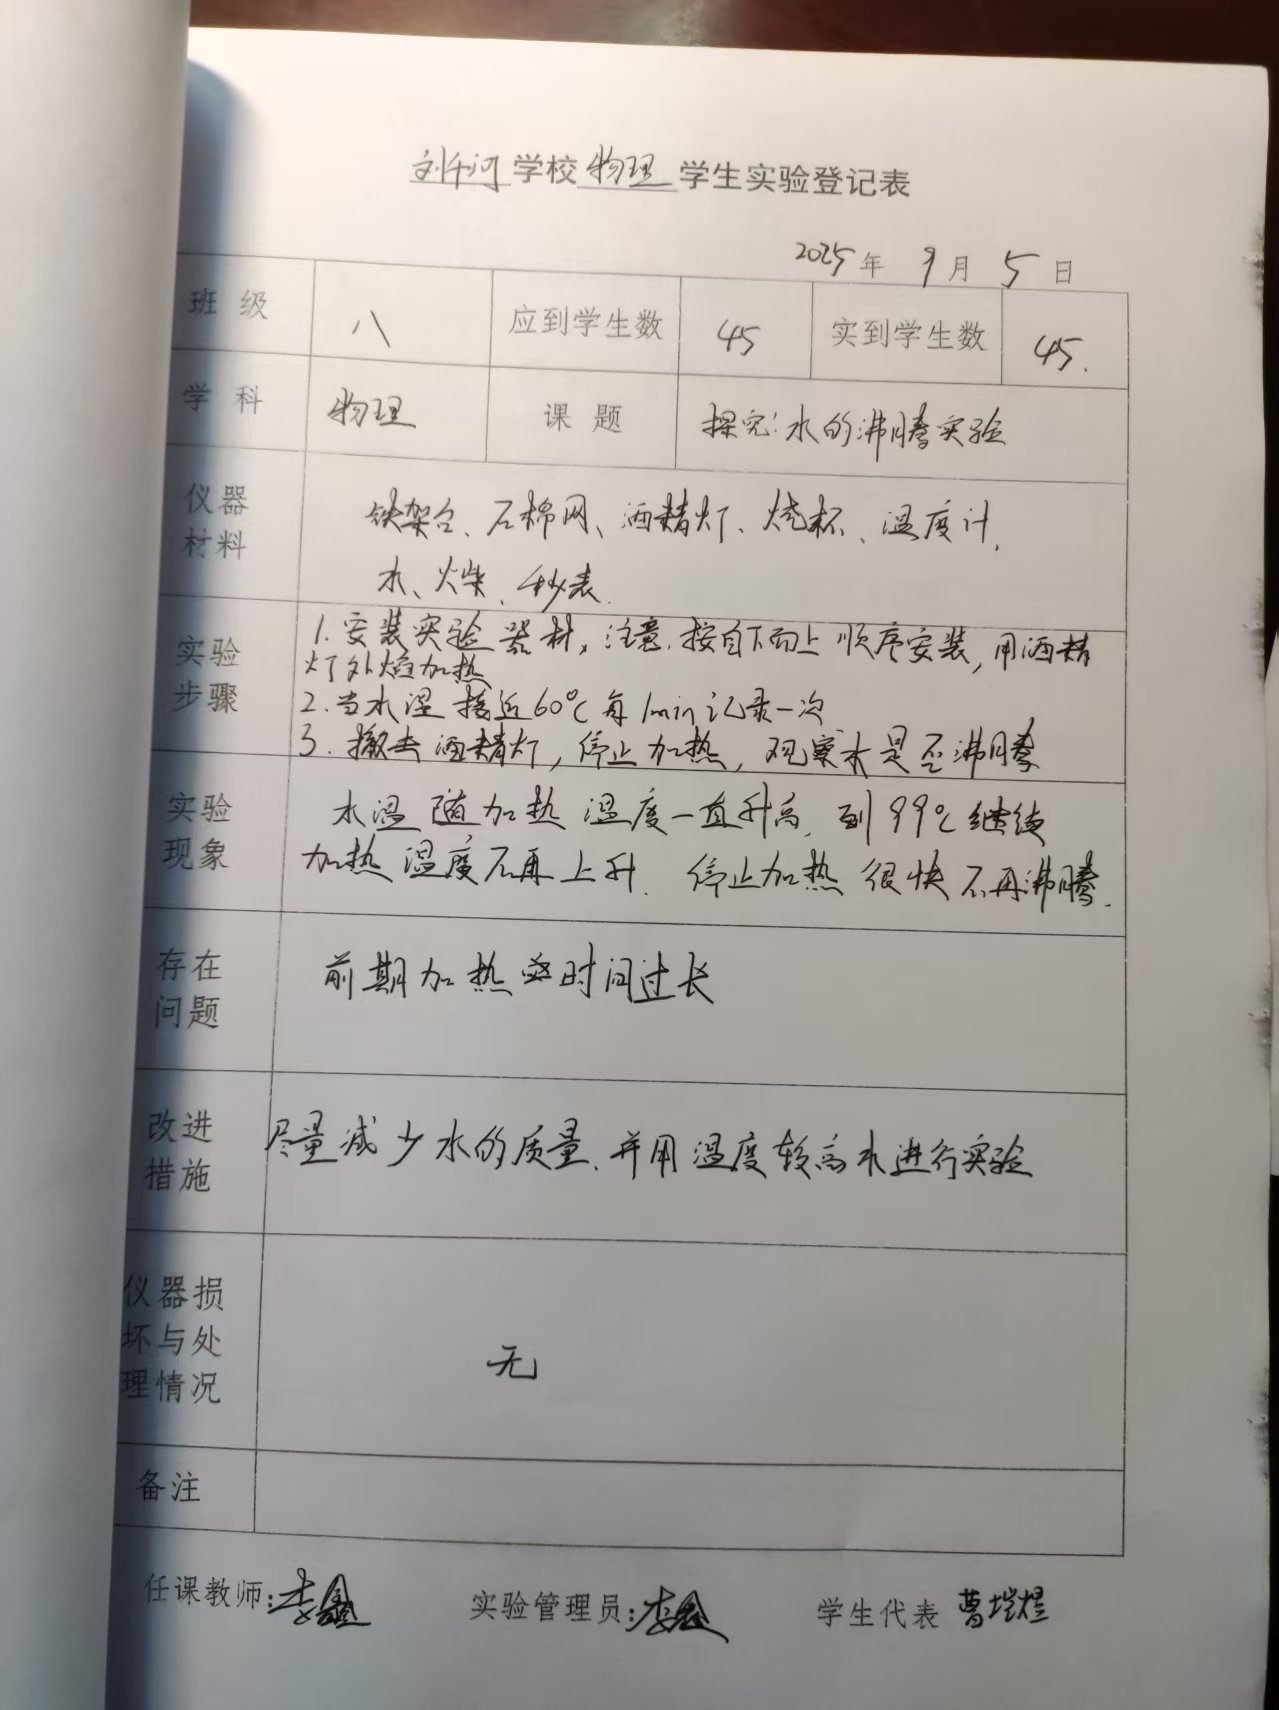 刘千河学校物理学生实验登记表
2025年 9月 5日
班级 八 应到学生数 45 实到学生数 45.
学科 物理 课题 探究:水的沸腾实验
仪器材料 铁架台、石棉网、酒精灯、烧杯、温度计、
水、火柴、秒表.
实验步骤 1.安装实验器材,注意.按自下而上顺序安装,用酒精
灯外焰加热
2.当水温接近60℃每1min记录一次
3.撤去酒精灯,停止加热,观察水是否沸腾
实验现象 水温随加热温度一直升高,到99℃继续
加热温度不再上升.停止加热很快不再沸腾.
存在问题 前期加热时间过长
改进措施 尽量减少水的质量、并用温度较高水进行实验
仪器损坏与处理情况 无
备注
任课教师: 实验管理员: 学生代表 曹垲煜